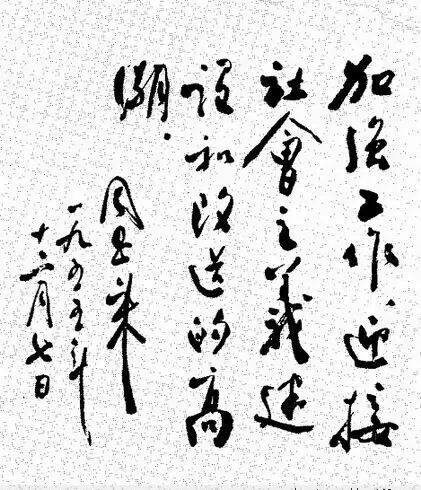 加强工作、迎接
社會主義建
設和改造的高
潮.
周恩来
一九五五年
十二月七日